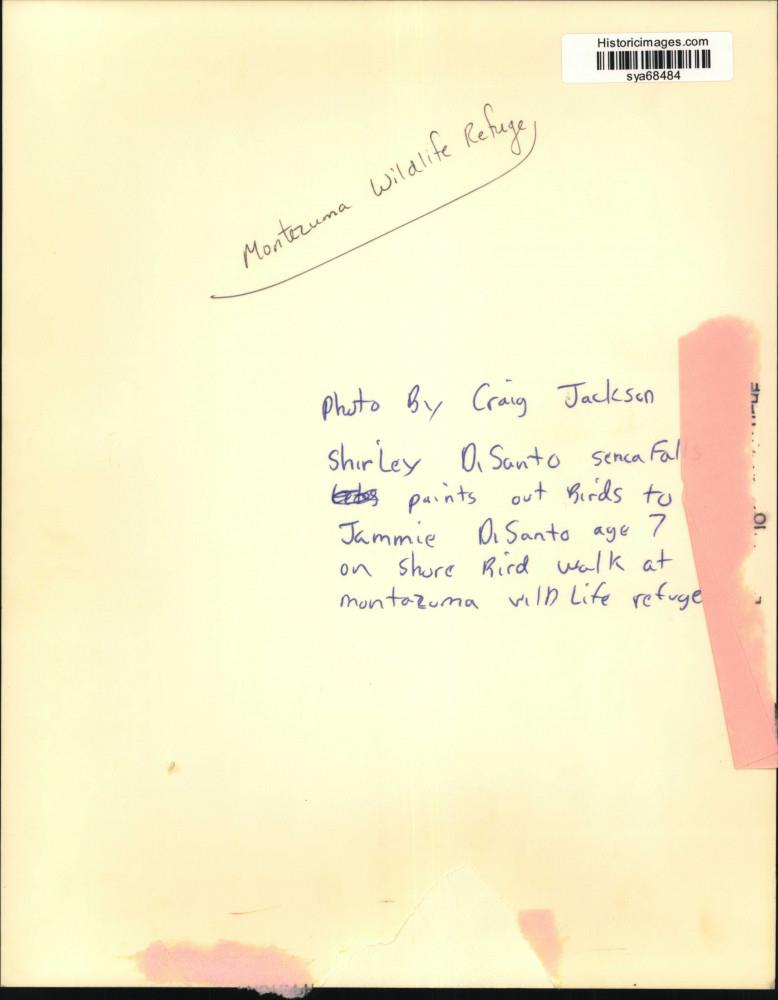 Historicimages.com
sya68484
Montezuma Wildlife Refuge
Photo By Craig Jackson
Shirley DiSanto seneca Fal
points out Birds to
Jammie DiSanto age 7
on Shore Bird walk at
montazuma wilD Life refuge